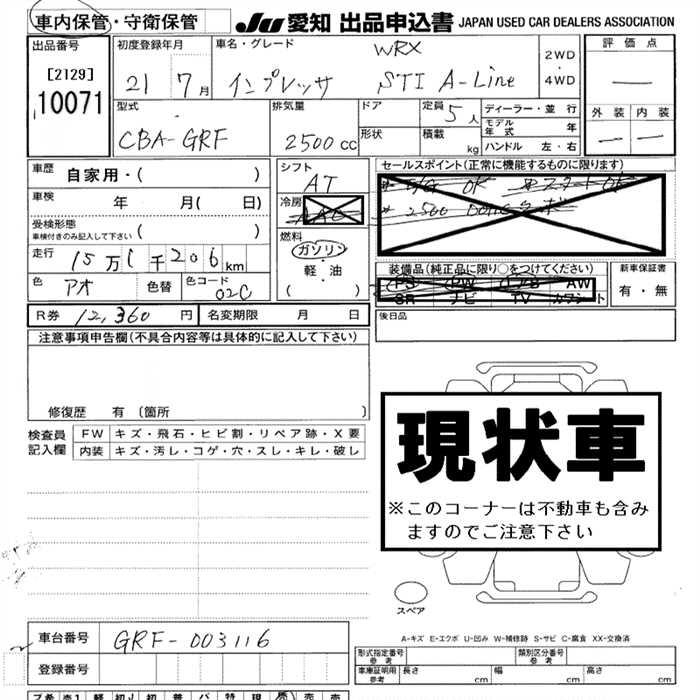 車内保管・守衛保管 JU 愛知 出品申込書 JAPAN USED CAR DEALERS ASSOCIATION
出品番号 初度登録年月 車名・グレード 評価点
[2129] 21 7月 インプレッサ WRX STI A-Line 2WD・4WD —
10071
型式 排気量 ドア 定員 5人 ディーラー・並行 外装 内装
CBA-GRF 2500cc 形状 積載 kg モデル年式 年 — —
ハンドル 左・右
車歴 自家用・( ) シフト AT セールスポイント(正常に機能するものに限ります)
車検 年 月( 日) 冷房 AAC
2500
受検形態 ( )
車検付きのみ記入して下さい
燃料 ガソリン・軽・油 ( )
走行 15万1千206km 装備品(純正品に限り○をつけてください) 新車保証書
色 アオ 色替 色コード 02C PS PW AW 有・無
SR ナビ TV カワシート
R券 12,360円 名変期限 月 日 後日品
注意事項申告欄(不具合内容等は具体的に記入して下さい)
修復歴 有 〔箇所 〕
検査員記入欄 FW キズ・飛石・ヒビ割・リペア跡・X要
内装 キズ・汚レ・コゲ・穴・スレ・キレ・破レ
現状車
※このコーナーは不動車も含み
ますのでご注意下さい
スペア
車台番号 GRF-003116
A-キズ E-エクボ U-凹み W-補修跡 S-サビ C-腐食 XX-交換済
登録番号
形式指定番号 参考 類別区分番号 参考
車庫証明用 参考 長さ cm 幅 cm 高さ cm